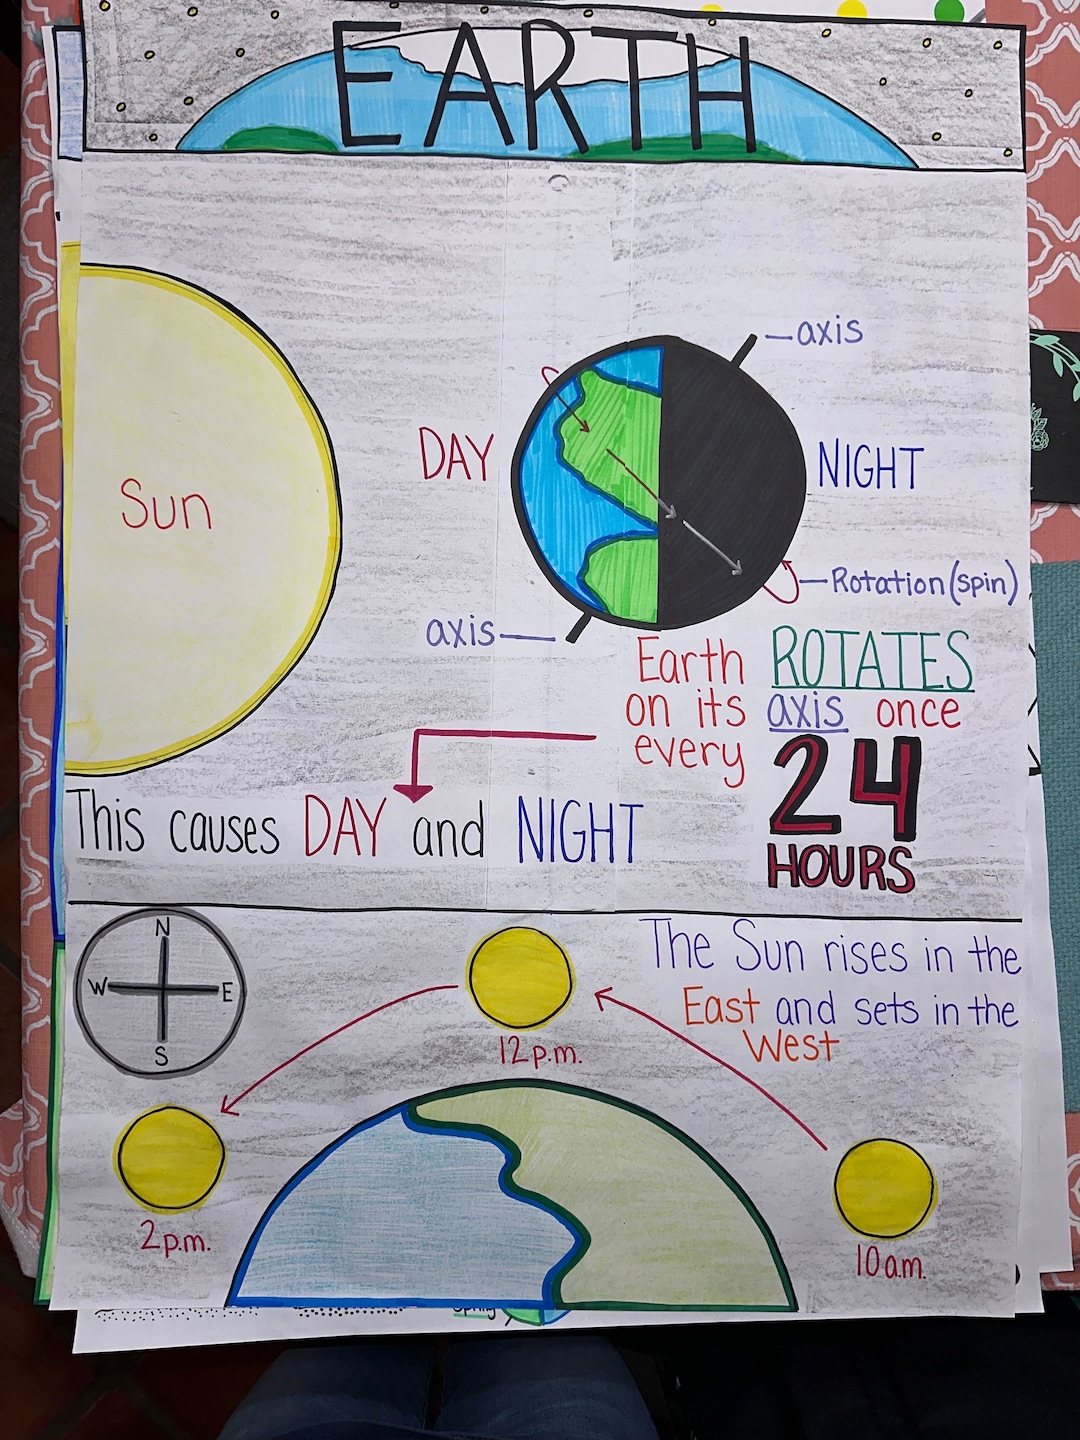 EARTH
axis
Sun
DAY
NIGHT
Rotation (spin)
axis
Earth ROTATES
on its axis once
every 24
HOURS
This causes DAY and NIGHT
N
W E
S
The Sun rises in the
East and sets in the
West
12 p.m.
2 p.m.
10 a.m.
Spring